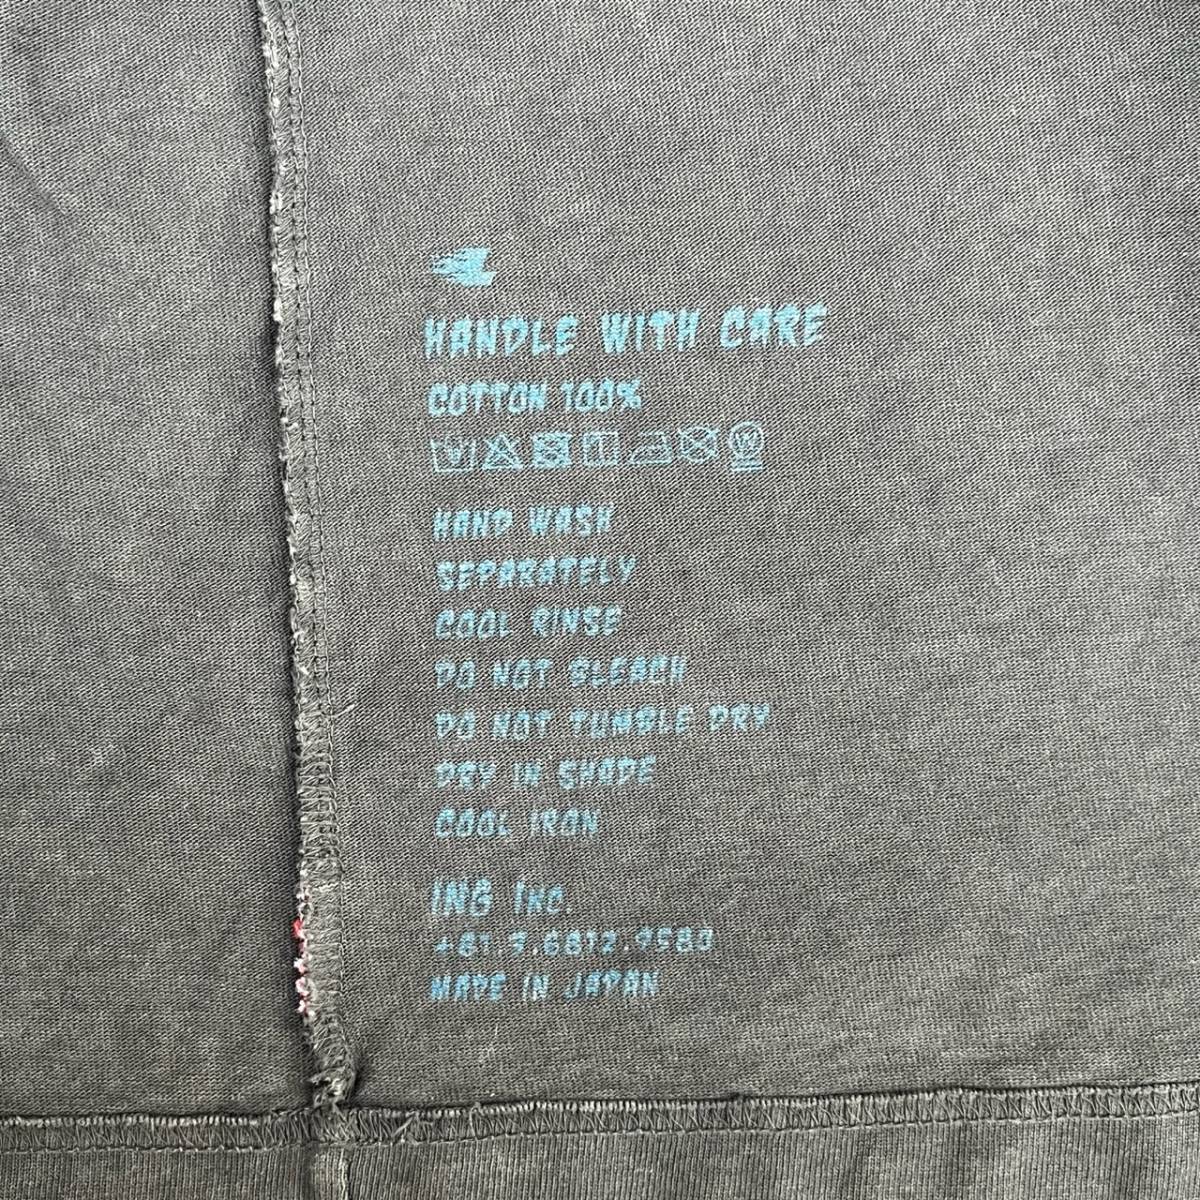 HANDLE WITH CARE
COTTON 100%
W
HAND WASH
SEPARATELY
COOL RINSE
DO NOT BLEACH
DO NOT TUMBLE DRY
DRY IN SHADE
COOL IRON
ING INC.
MADE IN JAPAN